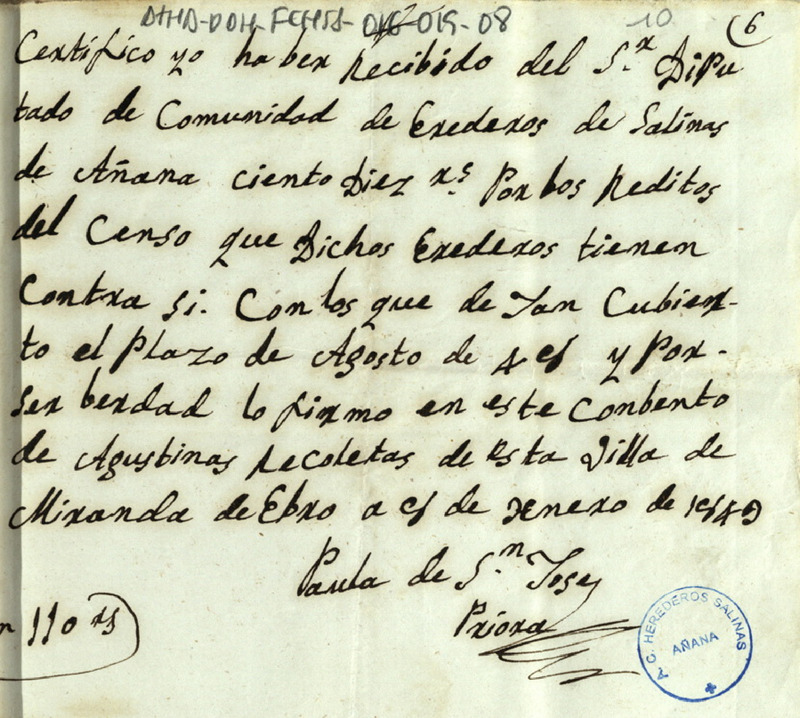 10
6
Certifico yo haber Recibido del S.r Dipu
tado de Comunidad de Erederos de Salinas
de Añana ciento Diez rs. Por los Reditos
del Censo que Dichos Erederos tienen
Contra Si. Con los que de Jan Cubier-
to el Plazo de Agosto de 48 y Por-
Ser berdad lo firmo en este Conbento
de Agustinas Recoletas de Esta Villa de
Miranda de Ebro a 8 de Enero de 1849
Paula de S.n Jose
Priora
110 rs
A.C. HEREDEROS SALINAS
AÑANA